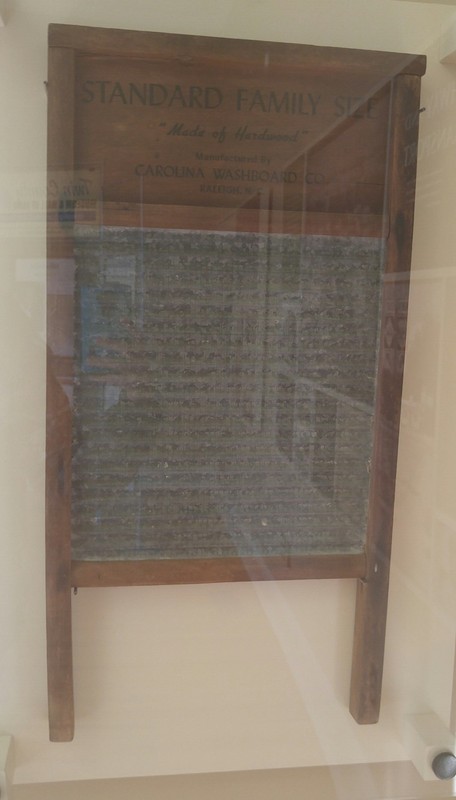 STANDARD FAMILY SIZE
"Made of Hardwood"
Manufactured by
CAROLINA WASHBOARD CO.
RALEIGH, N.C.